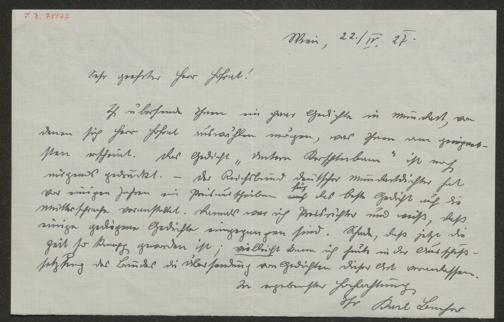 Wien, 22./IV. 27.
Sehr geehrter Herr Hofrat!
Ich übersende Ihnen ein paar Gedichte in Mundart, von
denen sich Herr Hofrat auswählen mögen, was Ihnen am geeignet-
sten erscheint. Das Gedicht „ ist noch
nirgends gedruckt. – Der Reichsbund deutscher Mundartdichter hat
vor einigen Jahren ein Preisausschreiben für das beste Gedicht auf die
Muttersprache veranstaltet. Damals war ich Preisrichter und weiß, daß
einige gediegene Gedichte eingegangen sind. Schade, daß jetzt die
Zeit so knapp geworden ist; vielleicht kann ich heute in der Ausschuß-
sitzung des Bundes die Übersendung von Gedichten dieser Art veranlassen.
In ergebenster Hochachtung
Ihr Karl Bacher